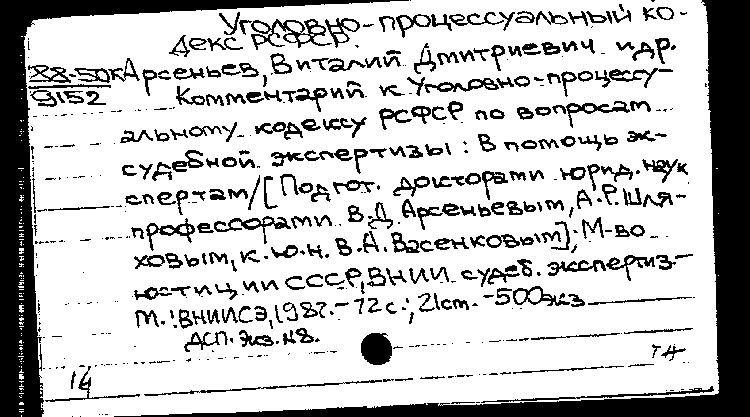 Уголовно-процессуальный ко-
декс РСФСР.
88-50к
9152
Арсеньев, Виталий Дмитриевич и др.
Комментарий к Уголовно-процессу-
альному кодексу РСФСР по вопросам
судебной экспертизы: В помощь эк-
спертам/[Подгот. докторами юрид. наук
профессорами В.Д. Арсеньевым, А.Р. Шля-
ховым, к.ю.н. В.А. Васенковым]; М-во
юстиции СССР, ВНИИ судеб. экспертиз.-
М.: ВНИИСЭ, 1987.- 72 с.; 21 cm. -500экз
ДСП. Экз. №8.
14